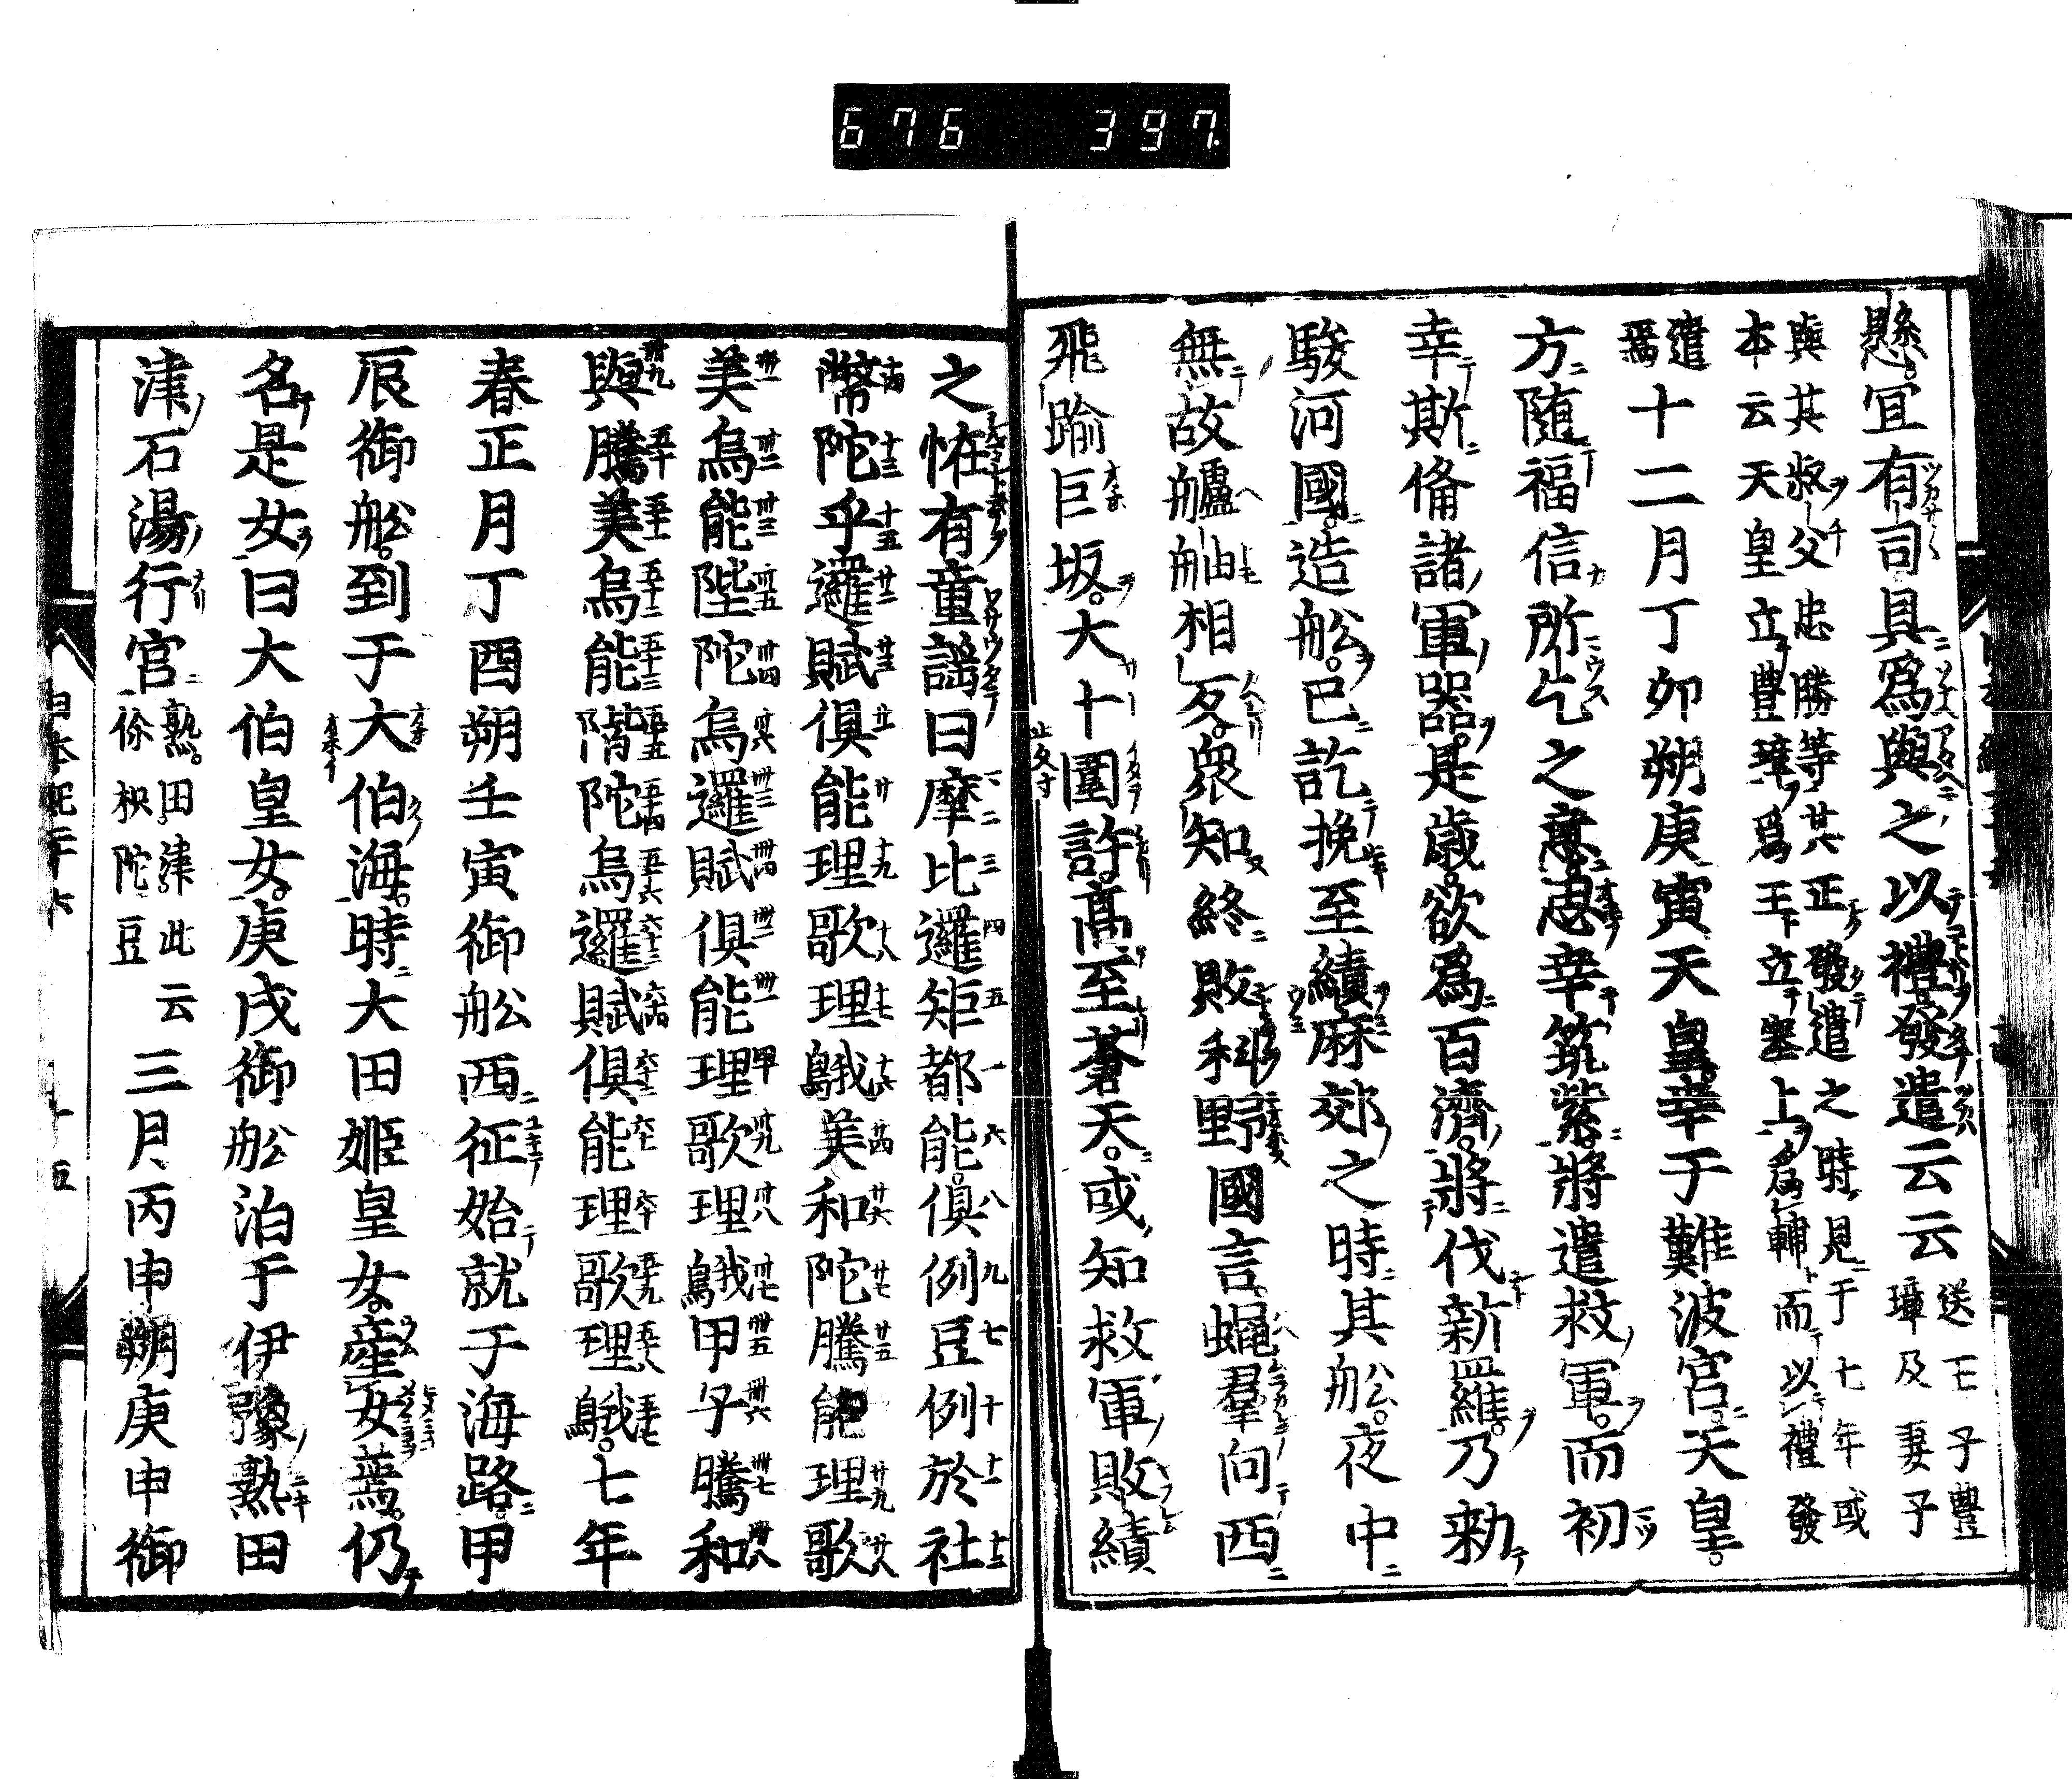 676 397
懸。宜有司具爲與之以禮發遣云云送王子豊璋及妻子
與其叔父忠勝等其正發遣之時見于七年或
本云天皇立豊璋爲王立塞上爲輔而以禮發
遣焉十二月丁夘朔庚寅天皇幸于難波宮天皇。
方隨福信所乞之意思幸筑紫將遣救軍。而初
幸斯備諸軍器。是歳欲爲百濟。將伐新羅。乃勅
駿河國。造舩。已訖挽至續麻郊之時其舩。夜中
無故艫舳相反。衆知終敗科野國言。蝿羣向西
飛踰巨坂。大十圍許。髙至蒼天。或知救軍敗績
之恠有童謡曰摩比邏矩都能倶例豆例於社
幣陀乎邏賦倶能理歌理鵝美和陀騰能理歌
美烏能陛陀烏邏賦倶能理歌理鵝甲子騰和
與騰美烏能陛陀烏邏賦倶能理歌理鵝。七年
春正月丁酉朔壬寅御舩西征始就于海路。甲
辰御舩。到于大伯海。時大田姫皇女。産女焉。仍
名是女曰大伯皇女。庚戌御舩泊于伊豫熟田
津石湯行宮熟田津此云
儞枳陀豆三月丙申朔庚申御